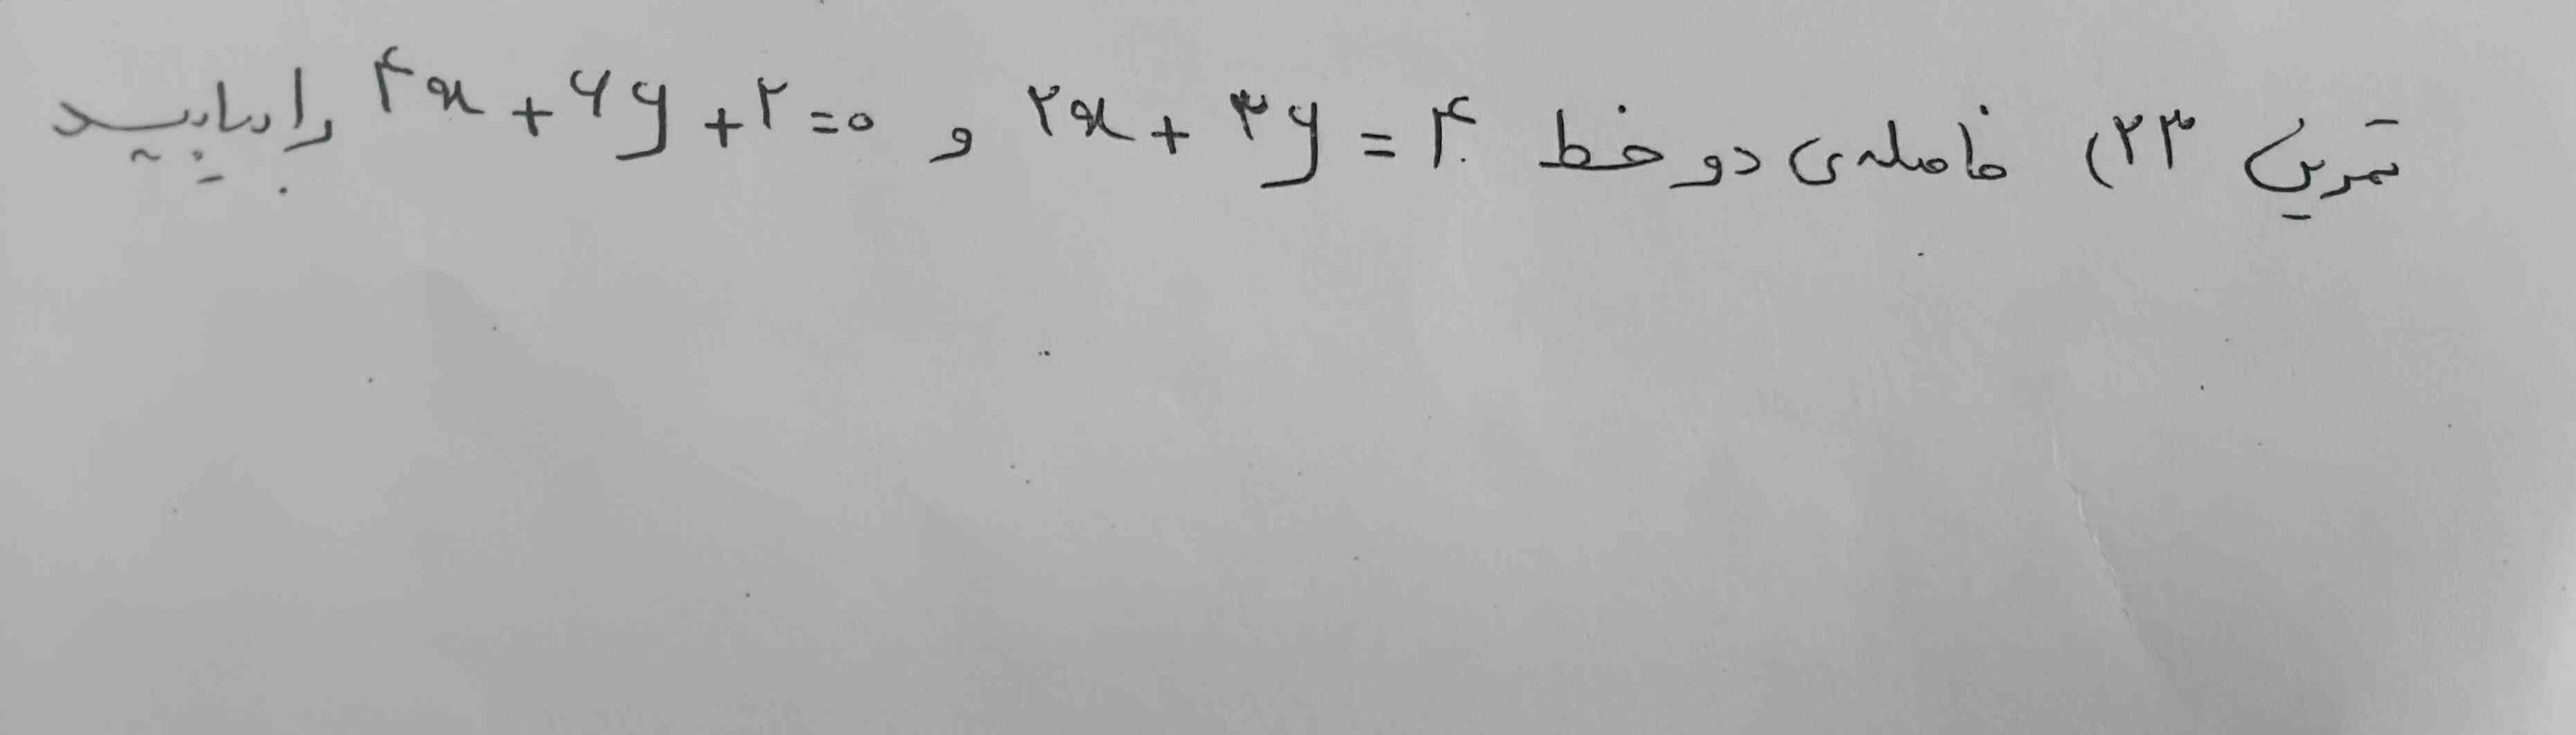 تمرین ۲۳) فاصله‌ی دو خط ۲x + ۳y = ۴ و ۴x + ۶y + ۲ = ۰ را بیابید